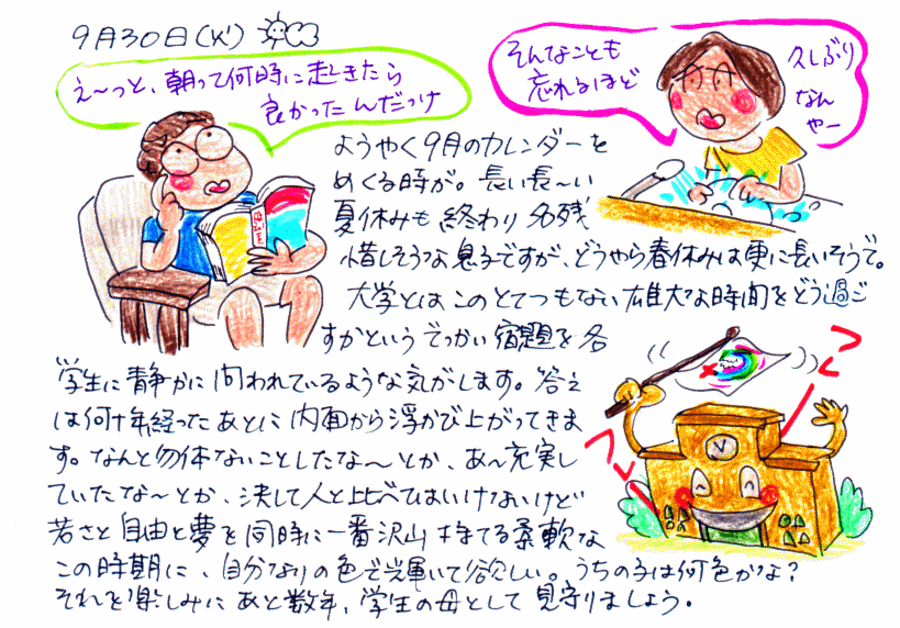 9月30日(火)
え〜っと、朝って何時に起きたら
良かったんだっけ
そんなことも
忘れるほど
久しぶり
なん
やー
ようやく9月のカレンダーを
めくる時が。長い長〜い
夏休みも終わり名残
惜しそうな息子ですが、どうやら春休みは更に長いそうで。
大学とはこのとてつもない雄大な時間をどう過ご
すかというでっかい宿題を各
学生に静かに問われているような気がします。答え
は何十年経ったあとに内面から浮かび上がってきま
す。なんと勿体ないことしたな〜とか、あ〜充実し
ていたな〜とか、決して人と比べてはいけないけど
若さと自由と夢を同時に一番沢山持てる柔軟な
この時期に、自分なりの色で輝いて欲しい。うちの子は何色かな?
それを楽しみにあと数年、学生の母として見守りましょう。
フレ
フレ